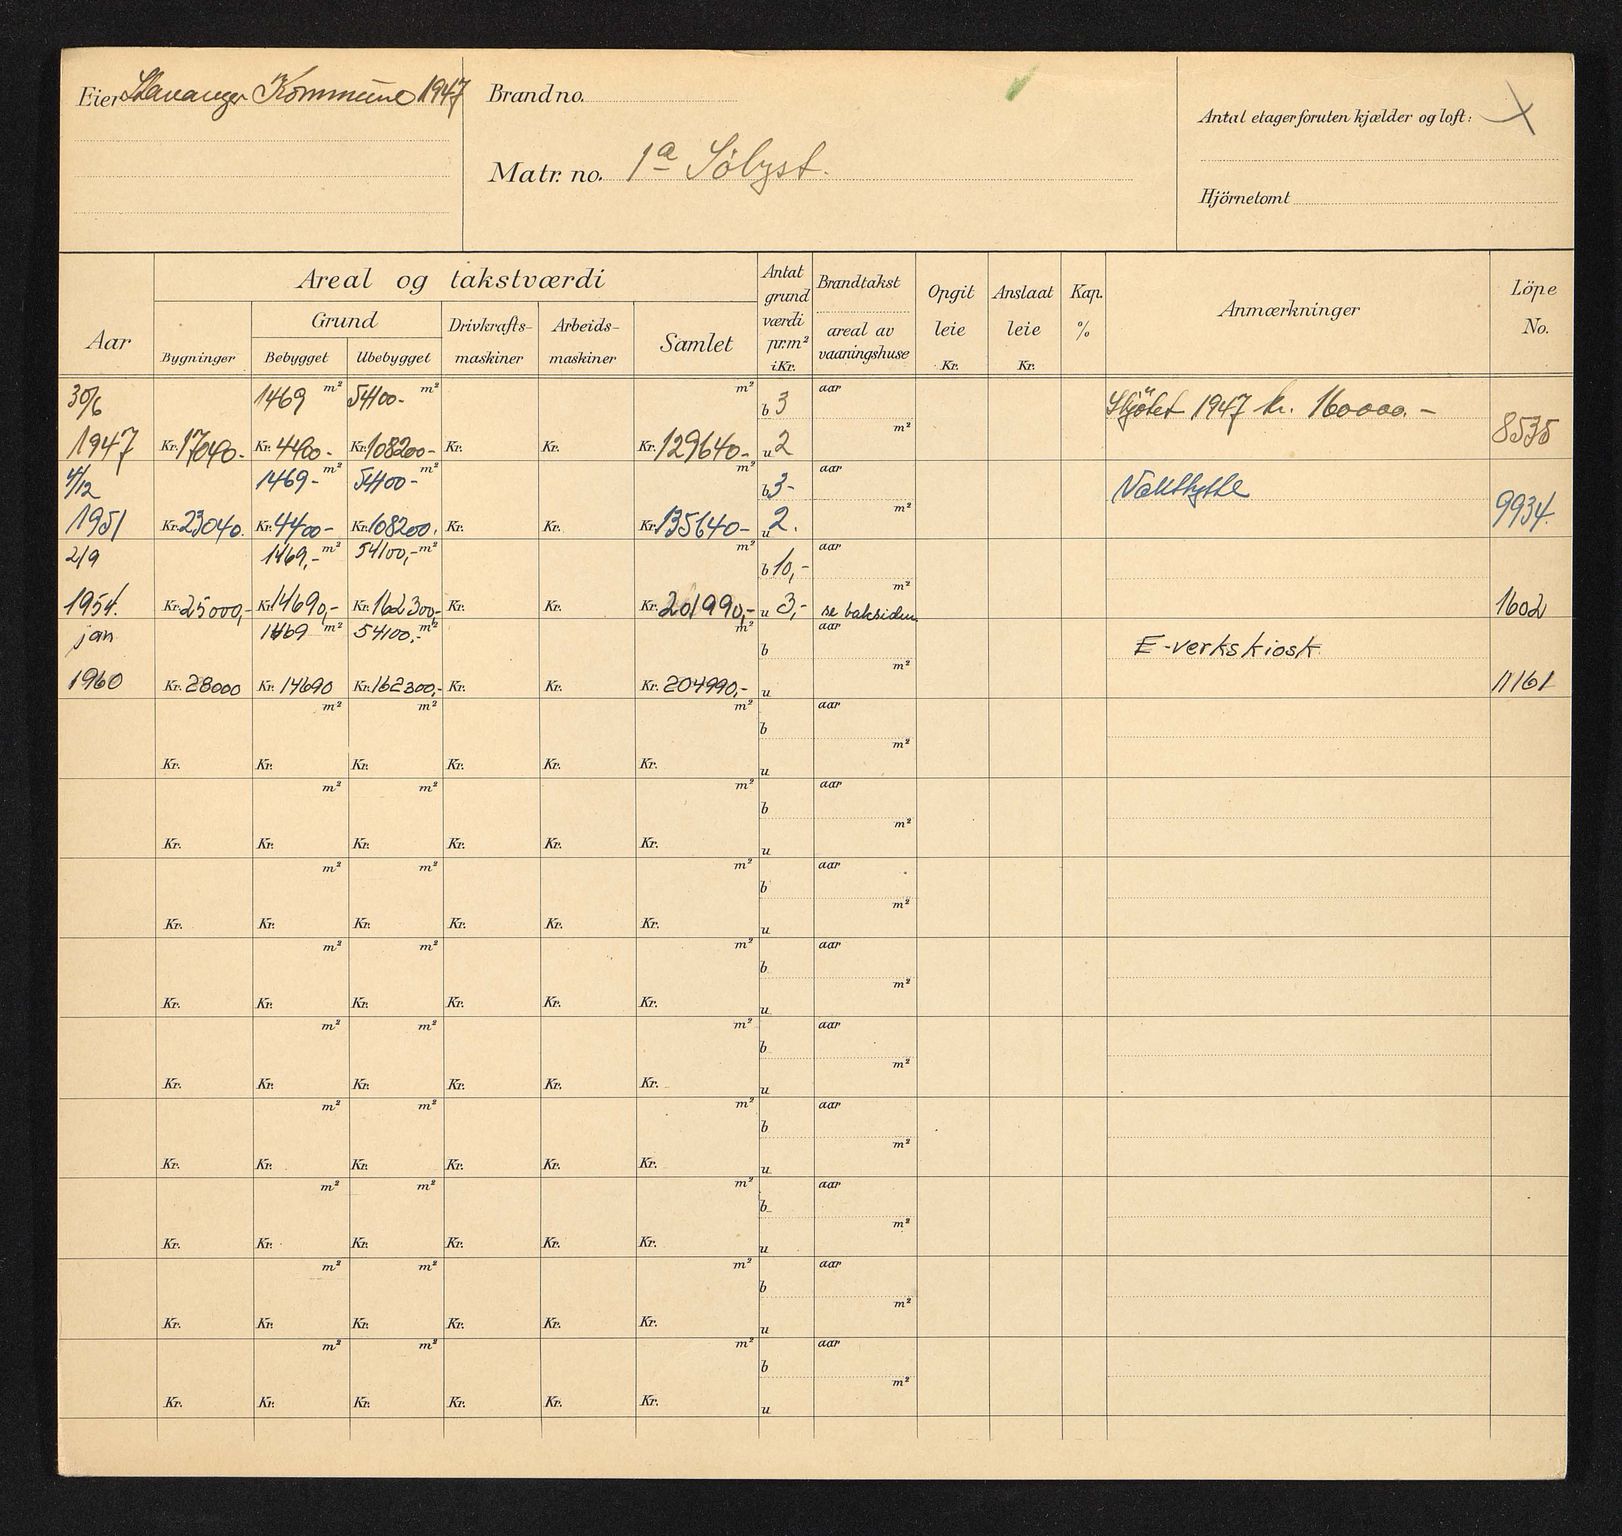 Eier Stavanger Kommune 1947
Brand no.
Matr. no. 1a Sølyst.
Antal etager foruten kjælder og loft:
Hjörnetomt
Areal og takstværdi
Aar
Bygninger
Grund
Bebygget
Ubebygget
Drivkrafts-
maskiner
Arbeids-
maskiner
Samlet
Antat
grund
værdi
pr.m²
i Kr.
Brandtakst
areal av
vaaningshuse
Opgit
leie
Kr.
Anslaat
leie
Kr.
Kap.
%
Anmærkninger
Löpe
No.
30/6 1469 m² 54100- m² m² b 3 aar Skjøtet 1947 kr. 160000.-
1947 Kr. 17040.- Kr. 4400.- Kr. 108200- Kr. Kr. Kr. 129640- u 2 m² 8535
4/12 1469- m² 54100- m² m² b 3- aar Vakthytte
1951 Kr. 23040. Kr. 4400- Kr. 108200. Kr. Kr. Kr. 135640- u 2. m² 9934.
2/9 1469,- m² 54100,- m² m² b 10,- aar m²
1954. Kr. 25000,- Kr. 14690,- Kr. 162300,- Kr. Kr. Kr. 201990,- u 3,- se baksiden 1602
jan 1469 m² 54100,- m² m² b aar E-verkskiosk
1960 Kr. 28000 Kr. 14690 Kr. 162300,- Kr. Kr. Kr. 204990,- u m² 11161
m² m² m² b aar m²
Kr. Kr. Kr. Kr. Kr. Kr. u
m² m² m² b aar m²
Kr. Kr. Kr. Kr. Kr. Kr. u
m² m² m² b aar m²
Kr. Kr. Kr. Kr. Kr. Kr. u
m² m² m² b aar m²
Kr. Kr. Kr. Kr. Kr. Kr. u
m² m² m² b aar m²
Kr. Kr. Kr. Kr. Kr. Kr. u
m² m² m² b aar m²
Kr. Kr. Kr. Kr. Kr. Kr. u
m² m² m² b aar m²
Kr. Kr. Kr. Kr. Kr. Kr. u
m² m² m² b aar m²
Kr. Kr. Kr. Kr. Kr. Kr. u
m² m² m² b aar m²
Kr. Kr. Kr. Kr. Kr. Kr. u